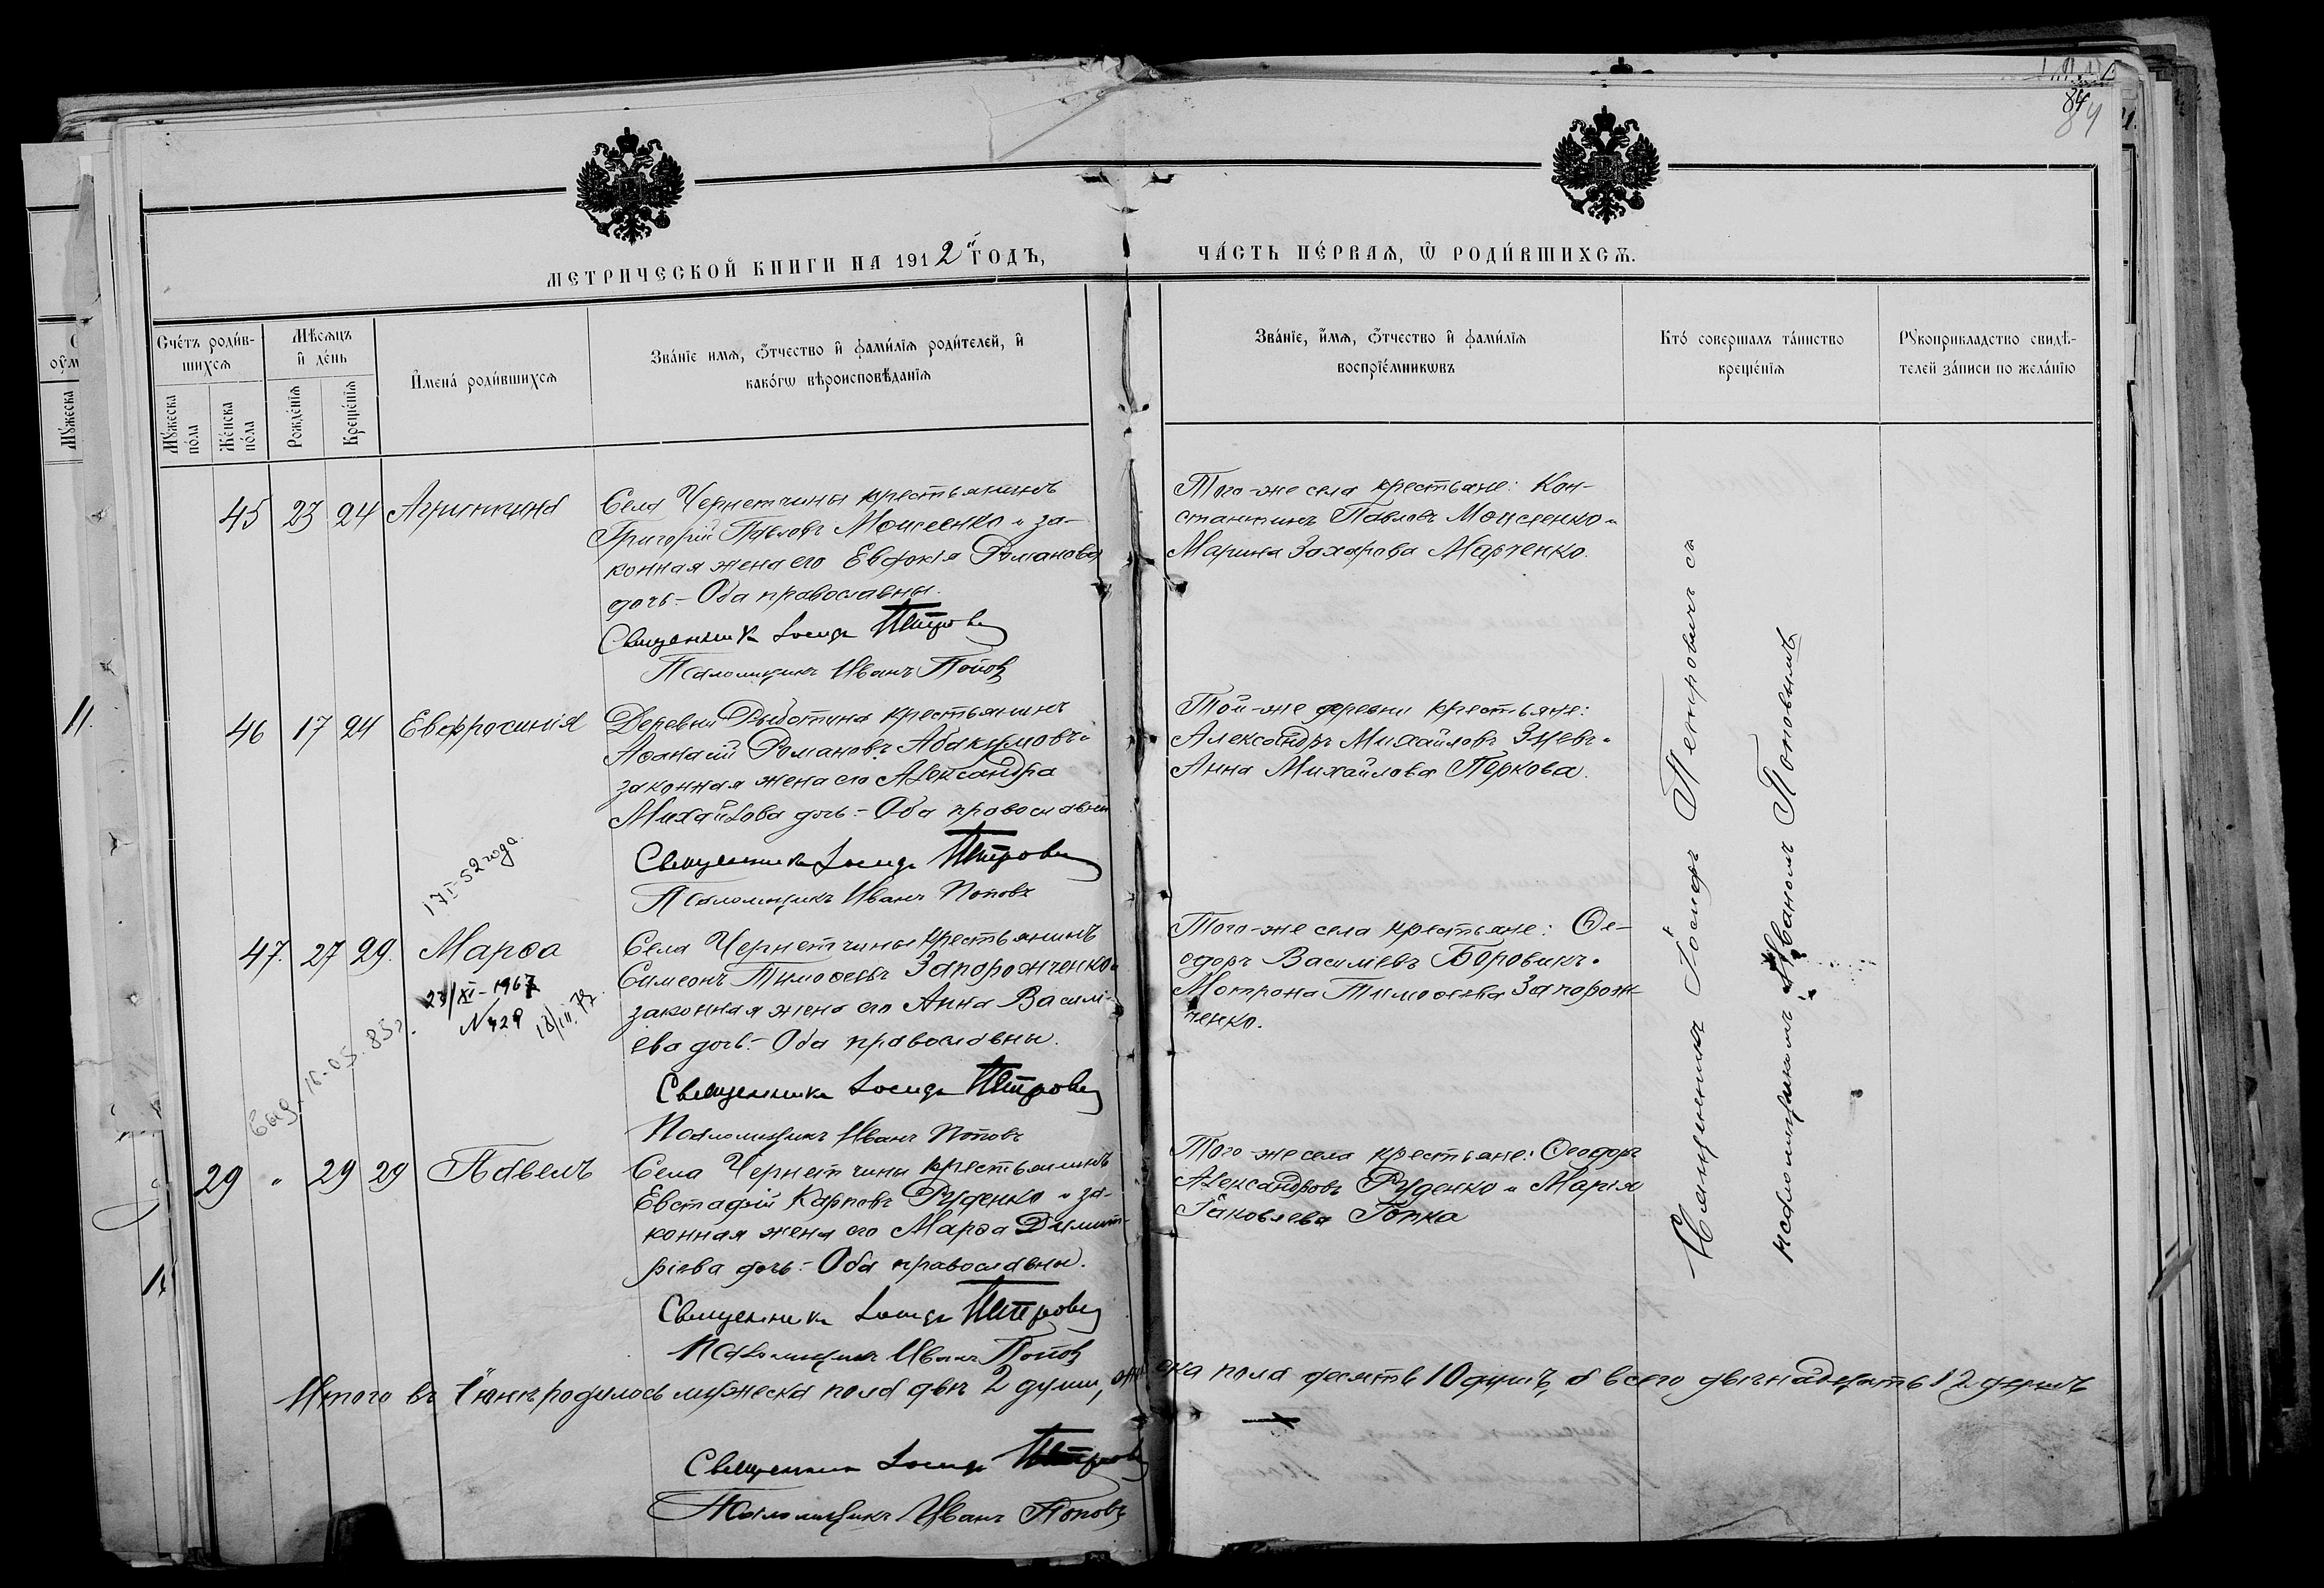 84
84
МЕТРИЧЕСКОЙ КНИГИ НА 1912й ГОДЪ,
ЧА́СТЬ ПЕ́РВАѦ, Ѡ҆ РОДИ́ВШИХСѦ.
Счéтъ роди́в-
шихсѧ
Мꙋ́жеска
пóла
Жéнска
пóла
Мѣсѧцъ
и҆ дéнь
Рождéнїѧ
Крещéнїѧ
И҆менá роди́вшихсѧ
Звáнїе имѧ, ѻ҆́тчество и҆ фами́лїѧ роди́телей, и҆
какóгѡ вѣроисповѣ́данїѧ
Звáнїе, и҆́мѧ, ѻ҆́тчество и҆ фами́лїѧ
воспрїе́мникѡвъ
Ктó совершалъ тáинство
крещéнїѧ
Рꙋкоприкладство свидѣ́-
телей зáписи по желáнїю
45 23 24 Агрипина
Села Чернетчины крестьянинъ
Григорій Павловъ Моисеенко и за-
конная жена его Евдокія Романова
дочь - Оба православны.
Священникъ Іосифъ Петрович
Псаломщикъ Иванъ Попов
Того-же села крестьяне: Кон-
стантинъ Павловъ Моисеенко и
Марина Захарова Марченко.
46 17 24 Евфросинія
Деревни крестьянинъ
Аѳанасій Романовъ Абакумовъ и
законная жена его Александра
Михайлова дочь - Оба православны
Священникъ Іосифъ Петрович
Псаломщикъ Иванъ Поповъ
Той-же деревни крестьяне:
Александръ Михайловъ Зуевъ и
Анна Михайлова Перкова.
17 I-52 года.
47. 27 29. Марѳа
23/XI-1967
N 429
Села Чернетчины крестьянинъ
Симеонъ Тимоѳеевъ Запорожченко и
законная жена его Анна Василі-
ева дочь - Оба православны.
Священникъ Іосифъ Петрович
Псаломщикъ Иванъ Поповъ
Того-же села крестьяне: Ѳе-
одоръ Василіевъ Боровикъ и
Мотрона Тимоѳеева Запорож-
ченко.
выд. 16-05-85г.
29 " 29 29 Павелъ
Села Чернетчины крестьянинъ
Евстафій Карповъ Руденко и за-
конная жена его Марѳа Димит-
ріева дочь - Оба православны.
Священникъ Іосифъ Петрович
Псаломщикъ Иванъ Попов
Того-же села крестьяне: Ѳеодоръ
Александровъ Руденко и Марія
Іаковлева Гопка
Священникъ Іосифъ Петровичъ съ
псаломщикомъ Иваномъ Поповымъ
Итого въ Іюнѣ родилось мужеска пола двѣ 2 души, ска пола десять 10 душъ, а всего двѣнадцать 12 душъ
Священникъ Іосифъ Петрович
Псаломщикъ Иванъ Поповъ